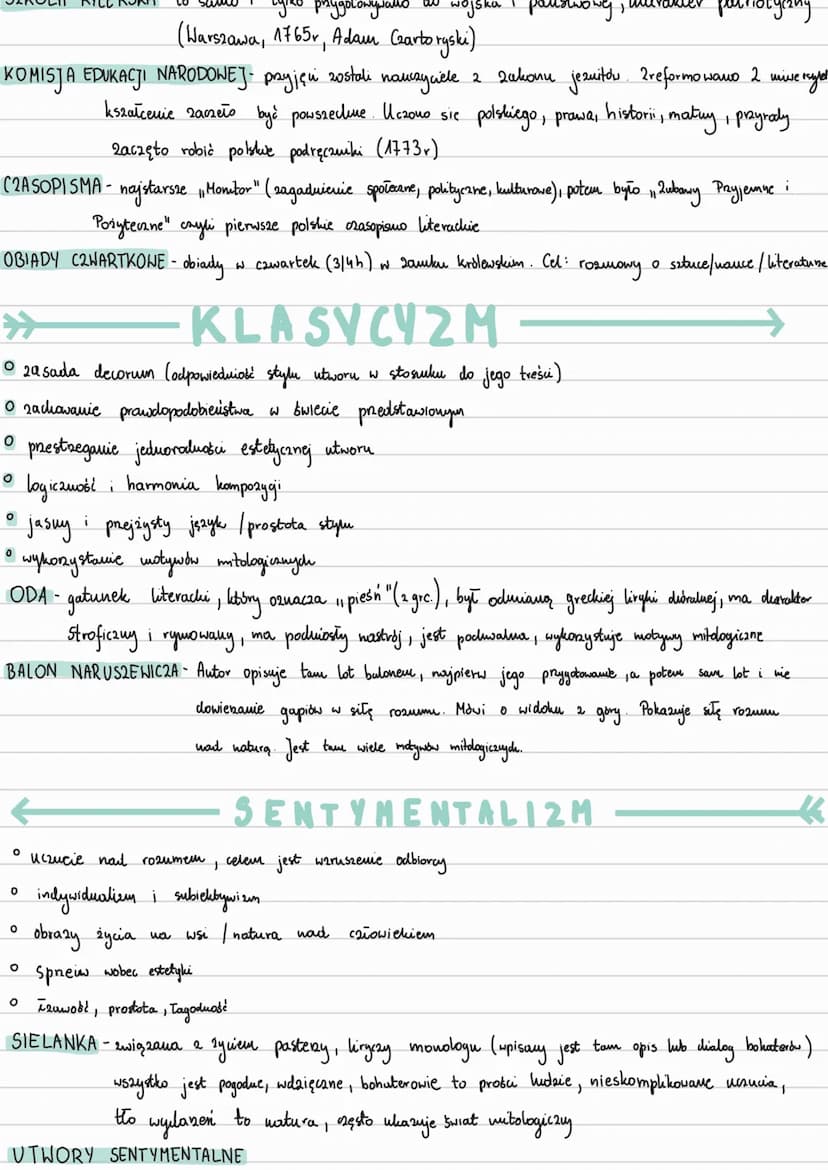 SZKOŁA RYCERSKA - to samo i tylko przygotowywano do wojska i państwowej, charakter patriotyczny
(Warszawa, 1765r, Adam Czartoryski)
KOMISJA EDUKACJI NARODOWEJ- przyjęci zostali nauczyciele z zakonu jezuitów. Zreformowano 2 uniwersytety
kształcenie zaczęło być powszechne. Uczono się polskiego, prawa, historii, matmy, przyrody
zaczęto robić polskie podręczniki (1773r)
CZASOPISMA - najstarsze „Monitor" (zagadnienie społeczne, polityczne, kulturowe), potem było „Zabawy Przyjemne i
Pożyteczne" czyli pierwsze polskie czasopismo literackie
OBIADY CZWARTKOWE - obiady w czwartek (3/4h) w zamku królewskim. Cel: rozmowy o sztuce/nauce/literaturze
KLASYCYZM
zasada decorum (odpowiedniość stylu utworu w stosunku do jego treści)
zachowanie prawdopodobieństwa w świecie przedstawionym
przestrzeganie jednorodności estetycznej utworu
logiczność i harmonia kompozycji
jasny i przejżysty język /prostota stylu
wykorzystanie motywów mitologicznych
ODA - gatunek literacki, który oznacza „pieśń" (z grc.), był odmianą greckiej liryki chóralnej, ma charakter
stroficzny i rymowany, ma podniosły nastrój, jest pochwalna, wykorzystuje motywy mitologiczne
BALON NARUSZEWICZA - Autor opisuje tam lot balonem, najpierw jego przygotowanie, a potem sam lot i nie
dowierzanie gapiów w siłę rozumu. Mówi o widoku z góry. Pokazuje siłę rozumu
nad naturą. Jest tam wiele motywów mitologicznych.
SENTYMENTALIZM
uczucie nad rozumem, celem jest wzruszenie odbiorcy
indywidualizm i subiektywizm
obrazy życia na wsi /natura nad człowiekiem
Sprzeiw wobec estetyki
Łzawość, prostota, łagodność
SIELANKA - związana z życiem pasterzy, liryczy monologu (wpisany jest tam opis lub dialog bohaterów)
wszystko jest pogodne, wdzięczne, bohaterowie to prości ludzie, nieskomplikowane uczucia,
tło wydarzeń to natura, często ukazuje świat mitologiczny
UTWORY SENTYMENTALNE